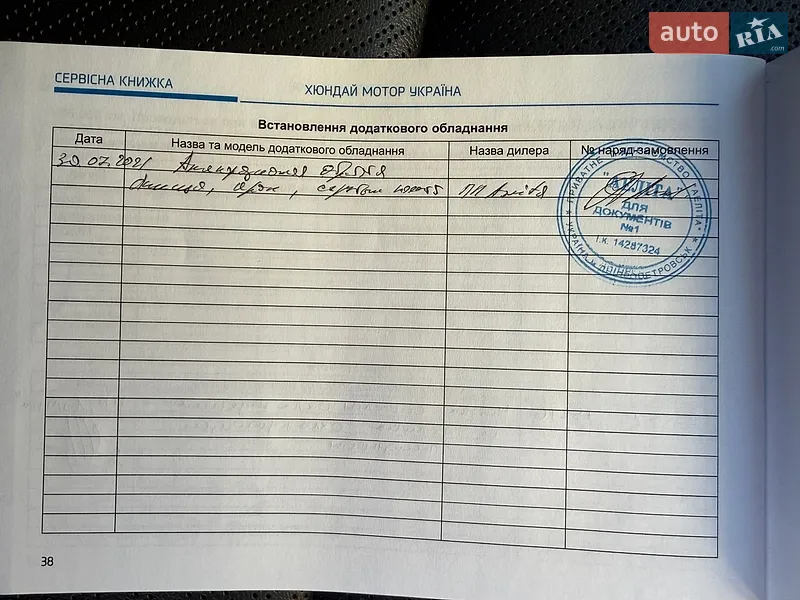 auto RIA .com
СЕРВІСНА КНИЖКА
ХЮНДАЙ МОТОР УКРАЇНА
Встановлення додаткового обладнання
Дата
Назва та модель додаткового обладнання
Назва дилера
№ наряд-замовлення
30.07.2021
ПП Аеліта
ПРИВАТНЕ ПІДПРИЄМСТВО "АЕЛІТА"
"АЕЛІТА"
ДЛЯ
ДОКУМЕНТІВ
№1
і.к. 14287324
УКРАЇНА м. ДНІПРОПЕТРОВСЬК
38